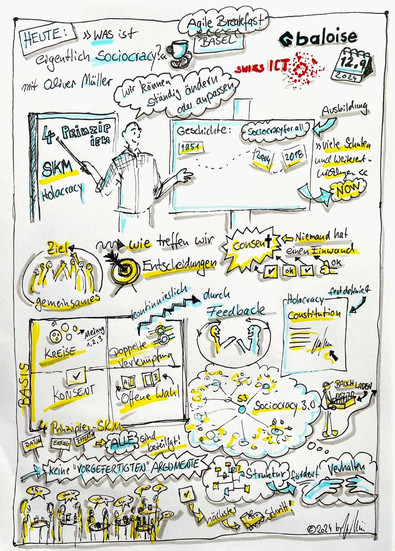 HEUTE:
»WAS ist
eigentlich Sociocracy?«
mit Oliver Müller
Agile Breakfast
BASEL
baloise
SWISS ICT
12.9
2024
wir können
ständig ändern
oder anpassen
4 Prinzipien
SKM
Holacracy
Geschichte:
1851
Sociocracy for all
2018
Ausbildung
»Viele Schulen
und Weiterent-
wicklungen«
NOW
Ziel
gemeinsames
wie treffen wir
Entscheidungen
Consent
Niemand hat
einen Einwand
ok
ok
kontinuierlich
durch
Feedback
Holacracy
Constitution
BASIS
KREISE
doppelte
Verknüpfung
KONSENT
Offene Wahl
4 Prinzipien SKM
S3
Sociocracy 3.0
ALLE sind
beteiligt!
keine "VORGEFERTIGTEN" ARGUMENTE
Struktur fördert Verhalten
nächster
Schritt!
©2024 by